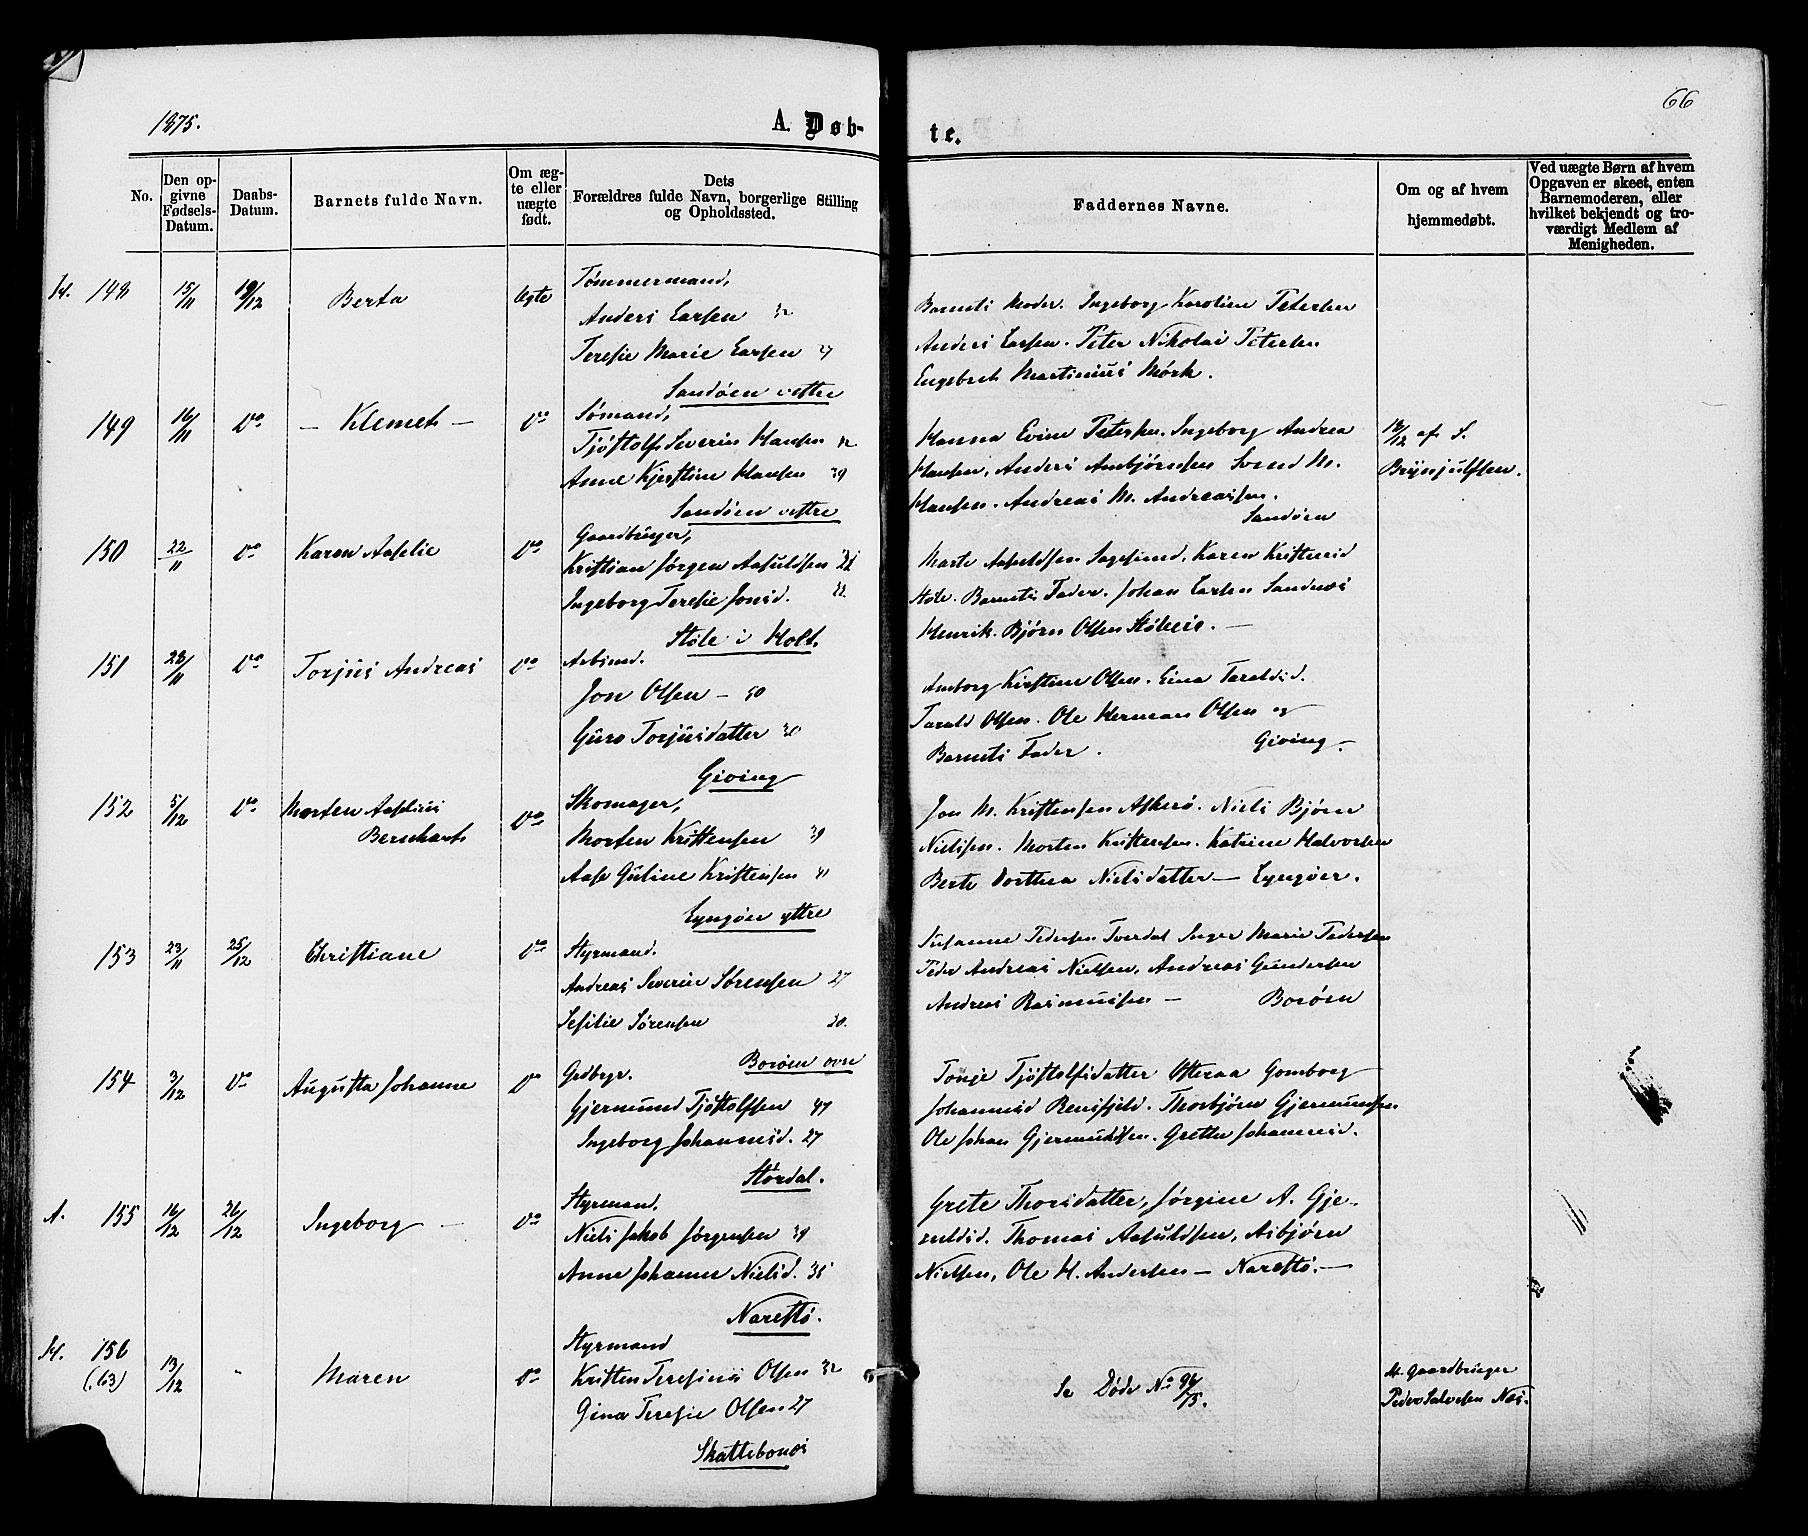 1875.
A. Døb-
te.
66
No.
Den op-
givne
Fødsels-
Datum.
Daabs-
Datum.
Barnets fulde Navn.
Om æg-
te eller
uægte
født.
Dets
Forældres fulde Navn, borgerlige Stilling
og Opholdssted.
Faddernes Navne.
Om og af hvem
hjemmedøbt.
Ved uægte Børn af hvem
Opgaven er skeet, enten
Barnemoderen, eller
hvilket bekjendt og tro-
værdigt Medlem af
Menigheden.
148 15/11 19/12 Berta Ægte
Tømmermand,
Anders Larsen 32
Teresie Marie Larsen 27
Sandøen vestre
Barnets Moder. Ingeborg Karoline Petersen
Anders Larsen. Peter Nikolai Petersen
Engebret Martinius Mörk.
149 16/11 Do – Klemet – Do
Sømand,
Tjøstolf Severin Hansen 32
Anne Kjerstine Hansen 39
Sandøen vestre
Hanna Evine Petersen. Ingeborg Andrea
Hansen, Anders Ambjørnsen Svend M.
Hansen. Andreas M. Andreassen.
Sandøen
18/12 af S.
Brynjulfsen.
150 22/11 Do Karen Aaselie Do
Gaardbruger,
Kristian Jørgen Aasulfsen
Ingeborg Teresie Jonsd.
Støle i Holt.
Marte Sagesund. Karen Kristensd
Støle. Barnets Fader. Johan Larsen Sandnæs
Henrik Bjørn Olsen
151 28/11 Do Torjus Andreas Do
Arbmd.
Jon Olsen – 50
Guro Torjusdatter 30
Giving
Amborg Kirstine Olsen. Lina Taraldsd.
Tarald Olsen. Ole Herman Olsen og
Barnets Fader. Giving –
152 5/12 Do Morten Aaselius
Bernhart Do
Skomager,
Morten Kristensen 39
Aase Guline Kristensen 41
Lyngøen yttre
Jon M. Kristensen Askerö. Niels Bjørn
Nielsen. Morten Kristensen. Katrine Halvorsen
Berte Dorthea Nielsdatter – Lyngøer.
153 23/11 25/12 Christiane Do
Styrmand.
Andreas Severin Sørensen 27
Sesilie Sørensen 30.
Borøen øvre
Susanne Pedersen Tverdal Inger Marie Pedersen
Peder Andreas Nielsen, Andreas Gundersen
Andreas Rasmussen – Borøen
154 3/12 Do Augusta Johanne Do
Grdbgr.
Gjermund Tjøstolfsen 47
Ingeborg Johannesd. 27
Størdal.
Tonje Tjøstolfsdatter Osteraa Gomborg
Johannesd Rensfjeld. Thorbjørn Gjermundsen
Ole Johan Gjermundsen. Grethe Johannesd.
A. 155 16/12 26/12 Ingeborg – Do
Styrmand.
Niels Jakob Jørgensen 39
Anne Johanne Nielsd. 35
Narestö.
Grete Thorsdatter, Jørgine A. Gje-
rulsd. Thomas Aasulfsen, Asbjørn
Nielsen, Ole H. Andersen – Narestö. –
156
(63) 13/12 " Maren Do
Styrmand
Kristen Teresius Olsen 32
Gina Teresie Olsen 27
Skattebonæs
Se Døde No 96/75.
Af Gaardbruger
Peder Salvesen Næs.